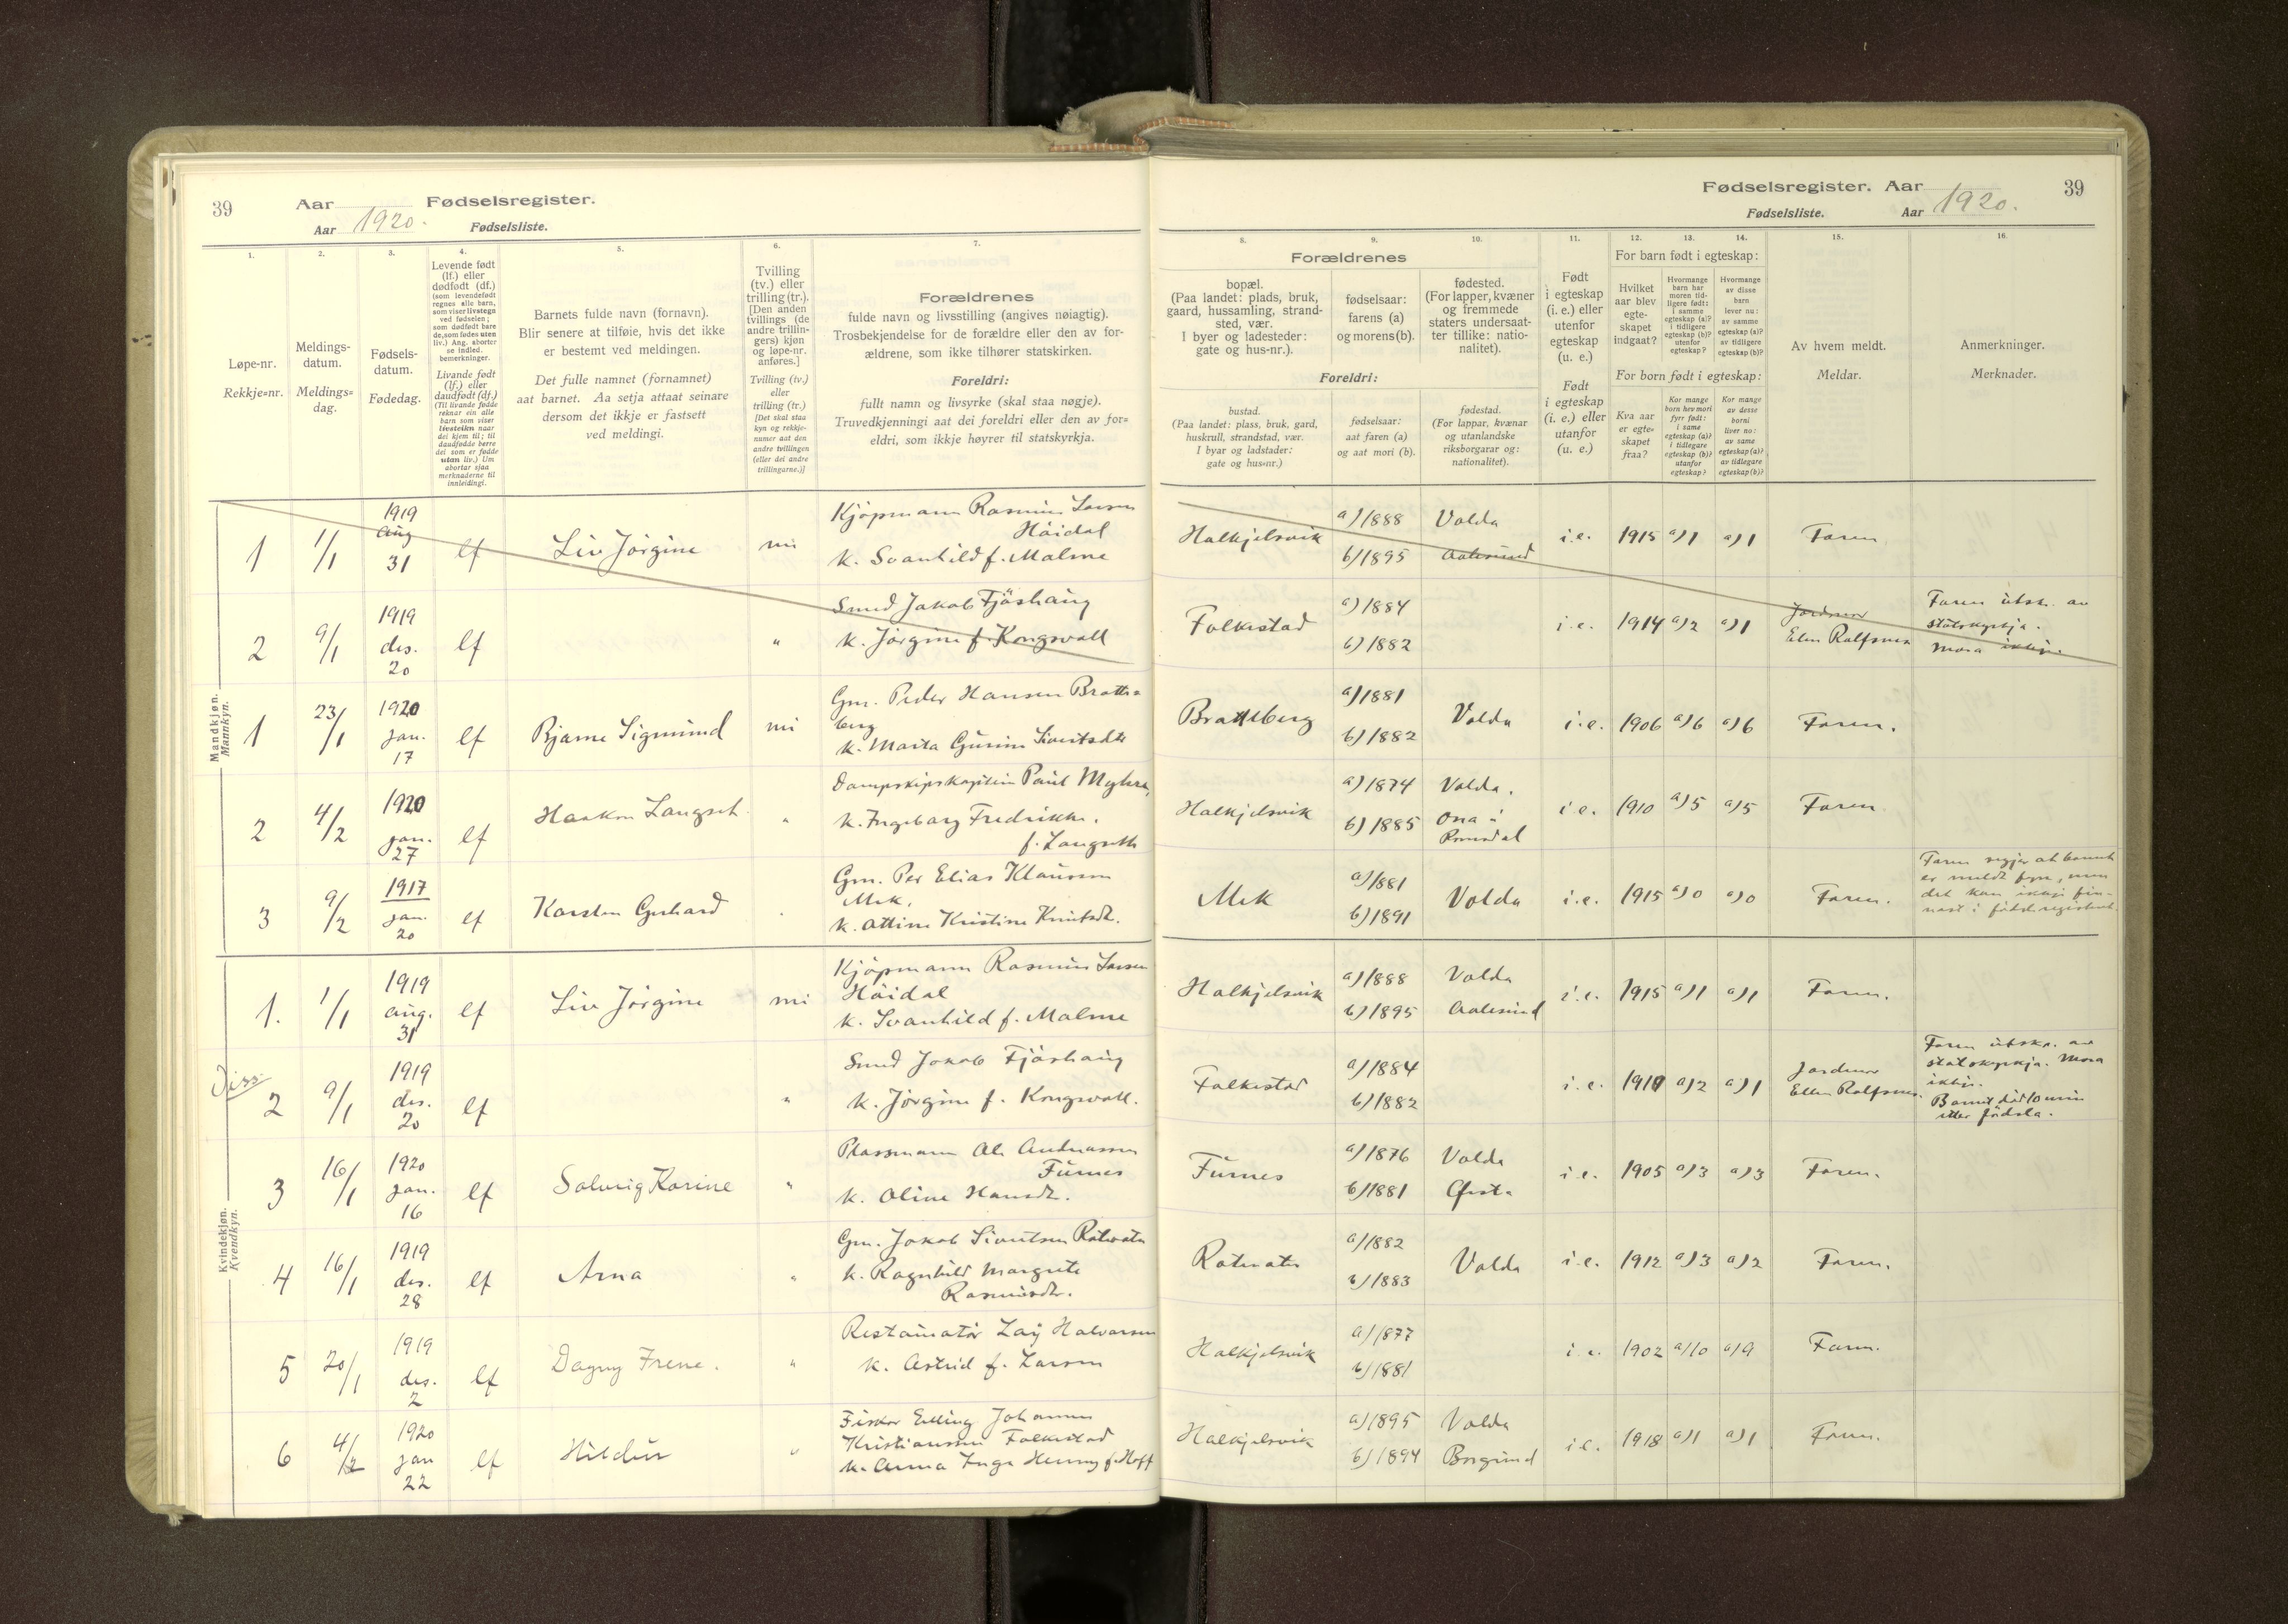 39
Aar
Fødselsregister.
Aar 1920.
Fødselsliste.
1.
Løpe-nr.
Rekkje=nr.
2.
Meldings-
datum.
Meldings=
dag.
3.
Fødsels-
datum.
Fødedag.
4.
Levende født
(lf.) eller
dødfødt (df.)
(som levendefødt
regnes alle barn,
som viser livstegn
ved fødselen;
som dødfødt bare
de, som fødes uten
liv.) Ang. aborter
se indled.
bemerkninger.
Livande født
(lf.) eller
daudfødt (df.)
(Til livande fødde
reknar ein alle
barn som viser
livsteikn naar
dei kjem til; til
daudfødde berre
dei som er fødde
utan liv.) Um
abortar sjaa
merknaderne til
innleidingi.
5.
Barnets fulde navn (fornavn).
Blir senere at tilføie, hvis det ikke
er bestemt ved meldingen.
Det fulle namnet (fornamnet)
aat barnet. Aa setja attaat seinare
dersom det ikkje er fastsett
ved meldingi.
6.
Tvilling
(tv.) eller
trilling (tr.).
[Den anden
tvillings (de
andre trillin-
gers) kjøn
og løpe-nr.
anføres.]
Tvilling (tv.)
eller
trilling (tr.)
[Det skal staa
kyn og rekkje-
numer aat den
andre tvillingen
(eller dei andre
trillingarne.)]
7.
Forældrenes
fulde navn og livsstilling (angives nøiagtig).
Trosbekjendelse for de forældre eller den av for-
ældrene, som ikke tilhører statskirken.
Foreldri:
fullt namn og livsyrke (skal staa nøgje).
Truvedkjenningi aat dei foreldri eller den av for=
eldri, som ikkje høyrer til statskyrkja.
Mandkjøn.
Mannkyn.
1
1/1
1919
Aug
31
lf
Liv Jørgine
nei
Kjøpmann Rasmus Larsen
Høidal
k. Svanhild f. Malme
2
9/1
1919
des.
20
lf
"
Smed Jakob Fjørhaug
k. Jørgine f. Kongsvoll
1
23/1
1920
jan.
17
lf
Bjarne Sigmund
nei
Gm. Peder Hansen Bratte=
berg
k. Marta Gurine Sivertsdtr
2
4/2
1920
jan.
27
lf
Haakon Langset
"
Dampskipskaptein Paul Myhre,
k. Ingeborg Fredrikke.
f. Langseth
3
9/2
1917
jan.
20
lf
Karsten Gerhard
Gm. Per Elias Klausen
Mek,
k. Attine Kristine Knutsdt.
Kvindekjøn.
Kvendkyn.
1.
1/1
1919
aug.
31
lf
Liv Jørgine
nei
Kjøpmann Rasmus Larsen
Høidal
k. Svanhild f. Malme
Diss.
2
9/1
1919
des.
20
lf
"
Smed Jakob Fjørhaug
k. Jørgine f. Kongsvoll.
3
16/1
1920
jan.
16
lf
Solveig Karine
"
Plassmann Ole Andreassen
Furnes
k. Oline Hansdt.
4
16/1
1919
des.
28
lf
Arna
"
Gm. Jakob Sivertsen Rotevatn
k. Ragnhild Margrete
Rasmusdtr.
5
20/1
1919
des.
2
lf
Dagny Irene.
"
Restauratør Halvorsen
k. Astrid f. Larsen
6
4/2
1920
jan
22
lf
Hildur
"
Fisker Elling Johannes
Kristiansen Folkestad
k. Anna Inga Henny f. Hoff
Fødselsregister. Aar
39
Fødselsliste.
Aar 1920.
Forældrenes
8.
bopæl.
(Paa landet: plads, bruk,
gaard, hussamling, strand-
sted, vær.
I byer og ladesteder:
gate og hus-nr.).
9.
fødselsaar:
farens (a)
og morens (b).
10.
fødested.
(For lapper, kvæner
og fremmede
staters undersaat-
ter tillike: natio-
nalitet).
Foreldri:
bustad.
(Paa landet: plass, bruk, gard,
huskrull, strandstad, vær.
I byar og ladstader:
gate og hus=nr.)
fødselsaar:
aat faren (a)
og aat mori (b).
fødestad.
(For lappar, kvænar
og utanlandske
riksborgarar og:
nationalitet).
11.
Født
i egteskap
(i. e.) eller
utenfor
egteskap
(u. e.)
Født
i egteskap
(i. e.) eller
utanfor
(u. e.)
For barn født i egteskap:
12.
Hvilket
aar blev
egte-
skapet
indgaat?
13.
Hvormange
barn har
moren tid-
ligere født:
i samme
egteskap (a)?
i tidligere
egteskap (b)?
utenfor
egteskap?
14.
Hvormange
av disse
barn
lever nu:
av samme
egteskap (a)?
av tidligere
egteskap (b)?
For born født i egteskap:
Kva aar
er egte-
skapet
fraa?
Kor mange
born hev mori
fyrr født:
i same
egteskap (a)?
i tidlegare
egteskap (b)?
utanfor
egteskap?
Kor mange
av desse
borni
liver no:
av same
egteskap (a)?
av tidlegare
egteskap (b)?
15.
Av hvem meldt.
Meldar.
16.
Anmerkninger.
Merknader.
Halkjelsvik
a) 1888
b) 1895
Volda
Aalesund
i.e.
1915
a) 1
a) 1
Faren
Folkestad
a) 1884
b) 1882
i.e.
1914
a) 2
a) 1
Jordmor
Elen Rolfsnes
Faren utskr. av
statskyrkja.
Mora ikkje.
Bratteberg
a) 1881
b) 1882
Volda
i.e.
1906
a) 6
a) 6
Faren.
Halkjelsvik
a) 1874
b) 1885
Volda.
Ona i
Romsdal
i.e.
1910
a) 5
a) 5
Faren
Mek
a) 1881
b) 1891
Volda
i.e.
1915
a) 0
a) 0
Faren.
Faren segjer at barnet
er meldt fyrr, men
det kan ikkje fin-
nast i fødselsregisteret.
Halkjelsvik
a) 1888
b) 1895
Volda
Aalesund
i.e.
1915
a) 1
a) 1
Faren.
Folkestad
a) 1884
b) 1882
i.e.
a) 2
a) 1
Jordmor
Ellen Rolfsnes.
Faren utskr. av
statskyrkja. Mora
ikkje.
Barnet død 10 min
etter fødsla.
Furnes
a) 1876
b) 1881
Volda
Ørsta
i.e.
1905
a) 3
a) 3
Faren.
Rotevatn
a) 1882
b) 1883
Volda
i.e.
1912
a) 3
a) 2
Faren.
Halkjelsvik
a) 1877
b) 1881
i.e.
1902
a) 10
a) 9
Faren.
Halkjelsvik
a) 1895
b) 1894
Volda
Borgund
i.e.
1918
a) 1
a) 1
Faren.